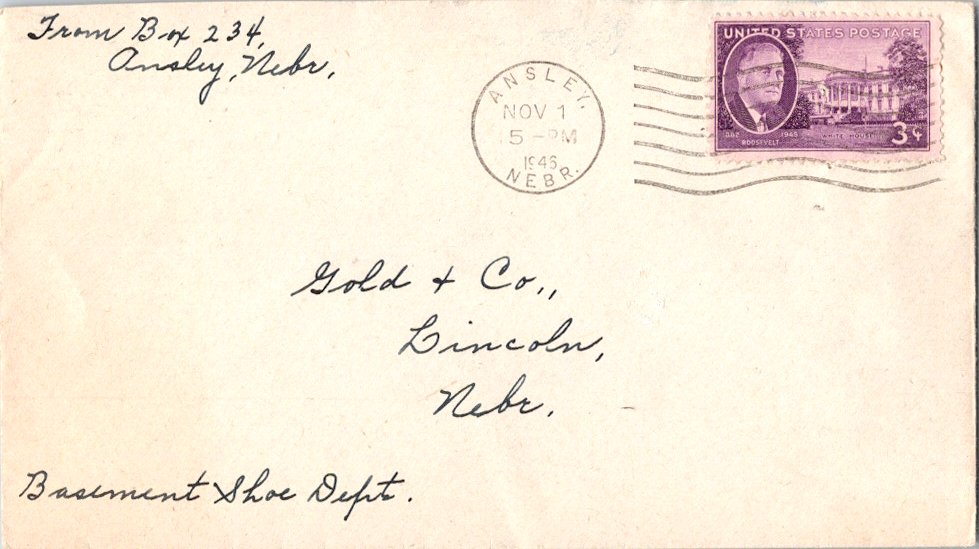 From Box 234,
Ansley, Nebr.
ANSLEY,
NOV 1
5 -PM
1946
NEBR.
UNITED STATES POSTAGE
1882 1945
ROOSEVELT
WHITE HOUSE
3¢
Gold & Co.,
Lincoln,
Nebr.
Basement Shoe Dept.